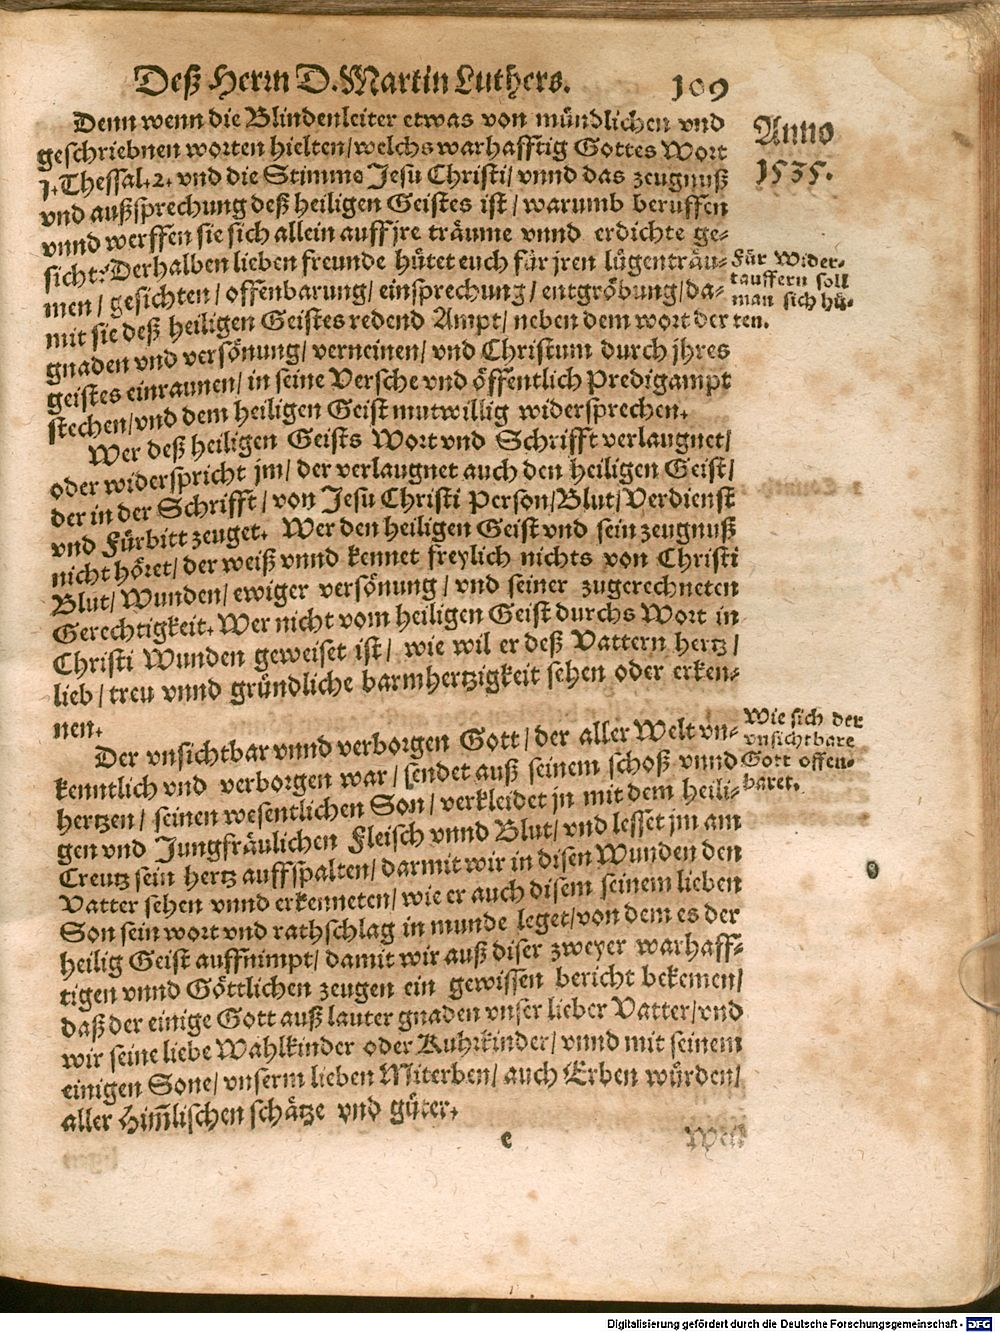 Deß Herrn D. Martin Luthers. 109
Anno
1535.
Denn wenn die Blindenleiter etwas von mündlichen vnd
geschriebnen worten hielten/welchs warhafftig Gottes Wort
1. Thessal. 2. vnd die Stimme Jesu Christi/ vnnd das zeugnuß
vnd außsprechung deß heiligen Geistes ist/ warumb beruffen
vnnd werffen sie sich allein auff jre träume vnnd erdichte ge-
sicht? Derhalben lieben freunde hütet euch für jren lügenträu-
men/ gesichten/ offenbarung/ einsprechung/ entgröbung/ da-
mit sie deß heiligen Geistes redend Ampt/ neben dem wort der
gnaden vnd versönung/ verneinen/ vnd Christum durch jhres
geistes einraunen/ in seine Versche vnd öffentlich Predigampt
stechen/vnd dem heiligen Geist mutwillig widersprechen.
Für Wider-
tauffern soll
man sich hü-
ten.
Wer deß heiligen Geists Wort vnd Schrifft verlaugnet/
oder widerspricht jm/ der verlaugnet auch den heiligen Geist/
der in der Schrifft/ von Jesu Christi Person/Blut/Verdienst
vnd Fürbitt zeuget. Wer den heiligen Geist vnd sein zeugnuß
nicht höret/ der weiß vnnd kennet freylich nichts von Christi
Blut/ Wunden/ ewiger versönung/ vnd seiner zugerechneten
Gerechtigkeit. Wer nicht vom heiligen Geist durchs Wort in
Christi Wunden geweiset ist/ wie wil er deß Vattern hertz/
lieb/ treu vnnd gründliche barmhertzigkeit sehen oder erken-
nen.
Der vnsichtbar vnnd verborgen Gott/ der aller Welt vn-
kenntlich vnd verborgen war/ sendet auß seinem schoß vnnd
hertzen/ seinen wesentlichen Son/ verkleidet jn mit dem heili-
gen vnd Jungfräulichen Fleisch vnnd Blut/ vnd lesset jm am
Creutz sein hertz auffspalten/ darmit wir in disen Wunden den
Vatter sehen vnnd erkenneten/ wie er auch disem seinem lieben
Son sein wort vnd rathschlag in munde leget/von dem es der
heilig Geist auffnimpt/ damit wir auß diser zweyer warhaff-
tigen vnnd Göttlichen zeugen ein gewissen bericht bekemen/
daß der einige Gott auß lauter gnaden vnser lieber Vatter/vnd
wir seine liebe Wahlkinder oder Kuhrkinder/ vnnd mit seinem
einigen Sone/ vnserm lieben Miterben/ auch Erben würden/
aller Him̃lischen schätze vnd güter.
Wie sich der
vnsichtbare
Gott offen-
baret.
e
Digitalisierung gefördert durch die Deutsche Forschungsgemeinschaft - DFG